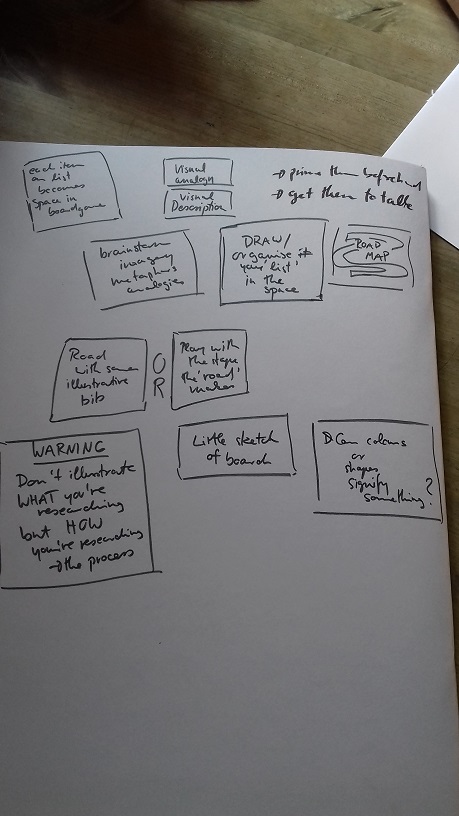 each item
on list
becomes
space in
boardgame
Visual
analogy
Visual
Description
→ prime them beforehand
→ get them to talk
brainstorm
imagery
metaphors
analogies
DRAW/
organise it
your 'list'
in the
space
ROAD
MAP
Road
with some
illustrative
bib
OR
Play with
the shape
the 'road'
makes
WARNING
Don't illustrate
WHAT you're
researching
but HOW
you're researching
→ the process
Little sketch
of board
Can colours
or
shapes
signify
something?